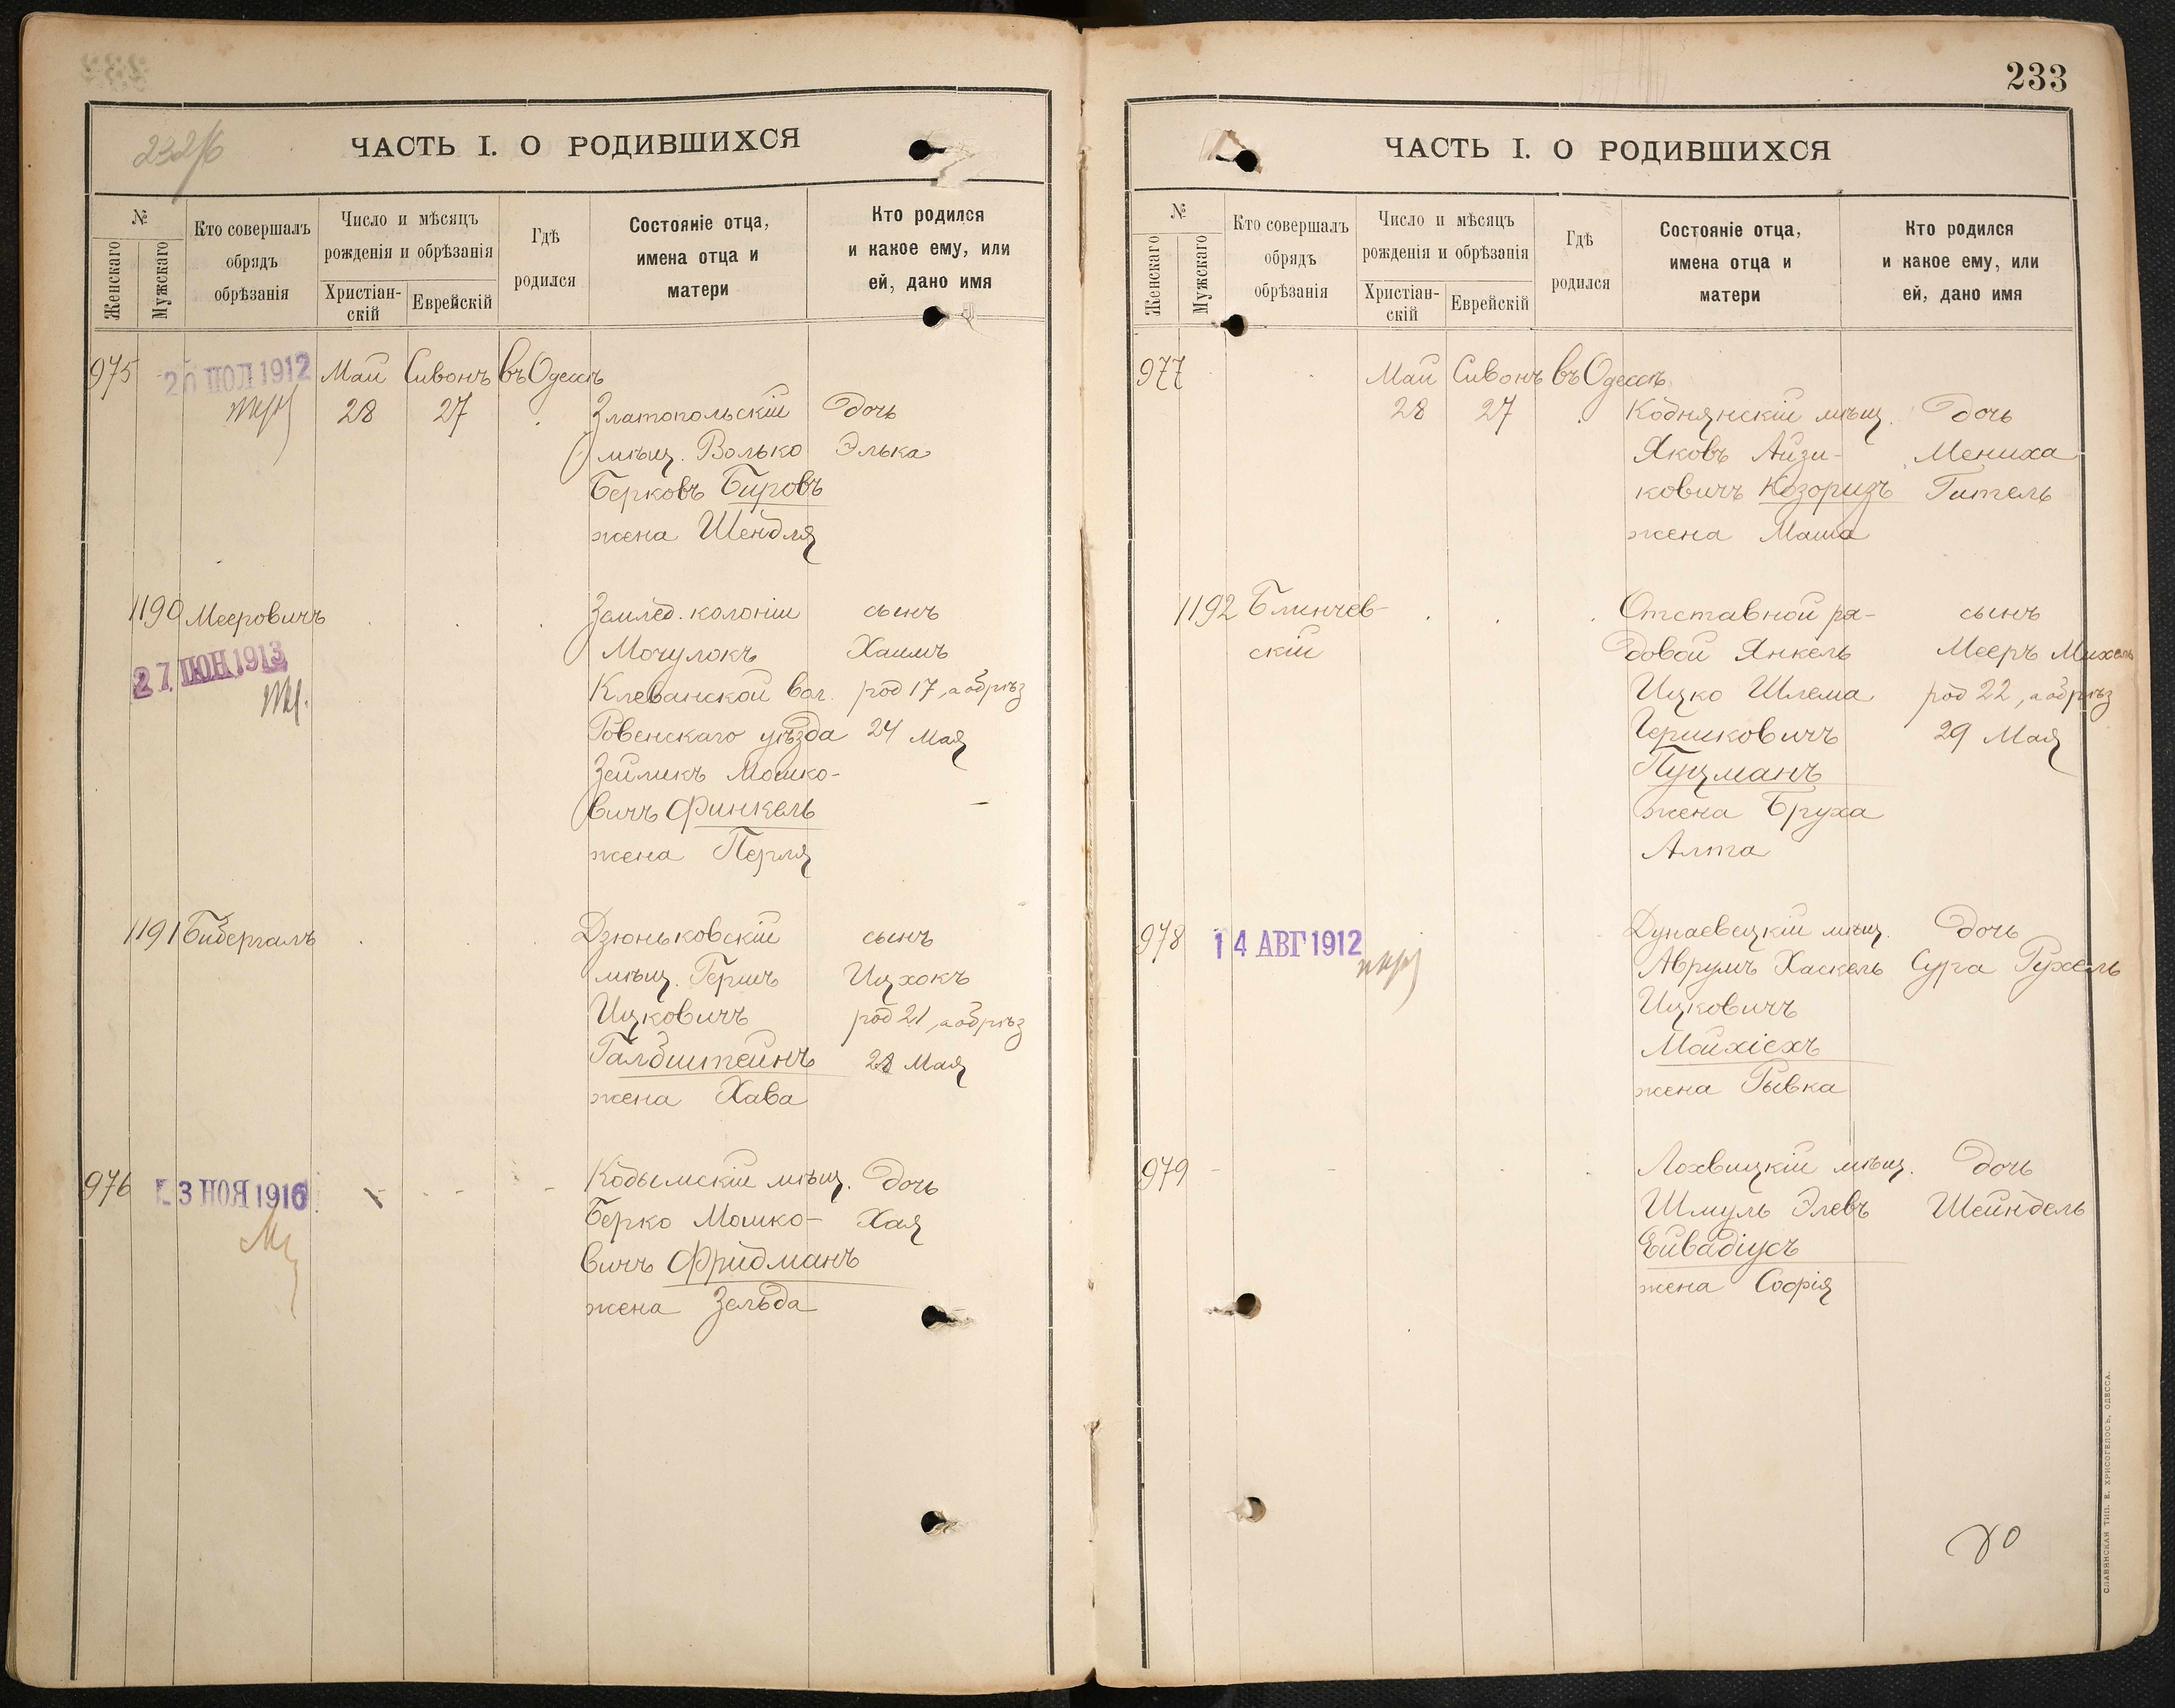 233
ЧАСТЬ I. О РОДИВШИХСЯ
№
Женскаго
Мужскаго
Кто совершалъ
обрядъ
обрѣзанія
Число и мѣсяцъ
рожденія и обрѣзанія
Христіан-
скій
Еврейскій
Гдѣ
родился
Состояніе отца,
имена отца и
матери
Кто родился
и какое ему, или
ей, дано имя
975
1912
Май Сивонъ въ Одессѣ
28 27
Златопольскій дочь
мѣщ. Волько Элька
Берковъ Бировъ
жена Шендля
1190 Мееровичъ
27 ІЮН 1913
Землед. колоніи сынъ
Мочулокъ Хаимъ
Клеванской вол. род 17, а обрѣз
Ровенскаго уѣзда 24 Мая
Зейликъ Мошко-
вичъ Финкель
жена Перля
1191 Бибергалъ
Дзюньковскій сынъ
мѣщ. Гершъ Ицхокъ
Ицковичъ род 21, а обрѣз
Галдштейнъ 28 Мая
жена Хава
976
3 НОЯ 1916
Кодымскій мѣщ. дочь
Берко Мошко- Хая
вичъ Фридманъ
жена Зельда
ЧАСТЬ I. О РОДИВШИХСЯ
№
Женскаго
Мужскаго
Кто совершалъ
обрядъ
обрѣзанія
Число и мѣсяцъ
рожденія и обрѣзанія
Христіан-
скій
Еврейскій
Гдѣ
родился
Состояніе отца,
имена отца и
матери
Кто родился
и какое ему, или
ей, дано имя
977
Май Сивонъ въ Одессѣ
28 27
Коднянскій мѣщ. дочь
Яковъ Айзи- Мениха
ковичъ Козоризъ Гитель
жена Маша
1192 Блинчев-
скій
Отставной ря- сынъ
довой Янкель Мееръ Михель
Ицко Шлема род 22, а обрѣз
Гершковичъ 29 Мая
Пуцманъ
жена Бруха
Алта
978
14 АВГ 1912
Дунаевецкій мѣщ. дочь
Аврумъ Хаскель Сура Рухель
Ицковичъ
Мойхіехъ
жена Рывка
979
Лохвицкій мѣщ. дочь
Шмуль Элевъ Шейндель
Ейвадіусъ
жена Софія
СЛАВЯНСКАЯ ТИП. Е. ХРИСОГЕЛОСЪ, ОДЕССА.